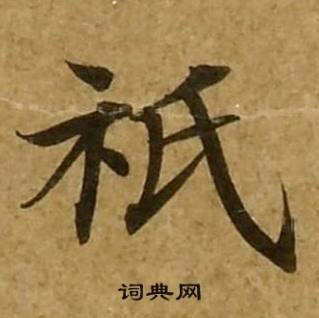 祇
词典网